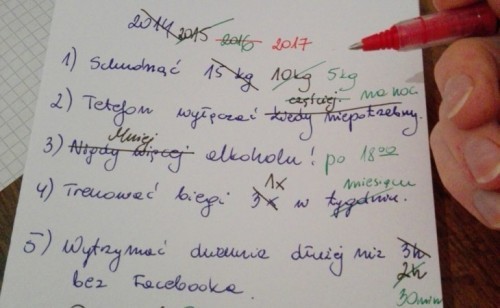 2014 2015 2016 2017
1) Schudnąć 15 kg 10kg 5kg
częściej na noc
2) Telefon wyłączać kiedy niepotrzebny.
Mniej
3) Nigdy więcej alkoholu! po 18⁰⁰
1x miesiącu
4) Trenować biegi 3x w tygodniu.
5) Wytrzymać dwa dnia dłużej niż 3h
2h
bez Facebooka. 30min